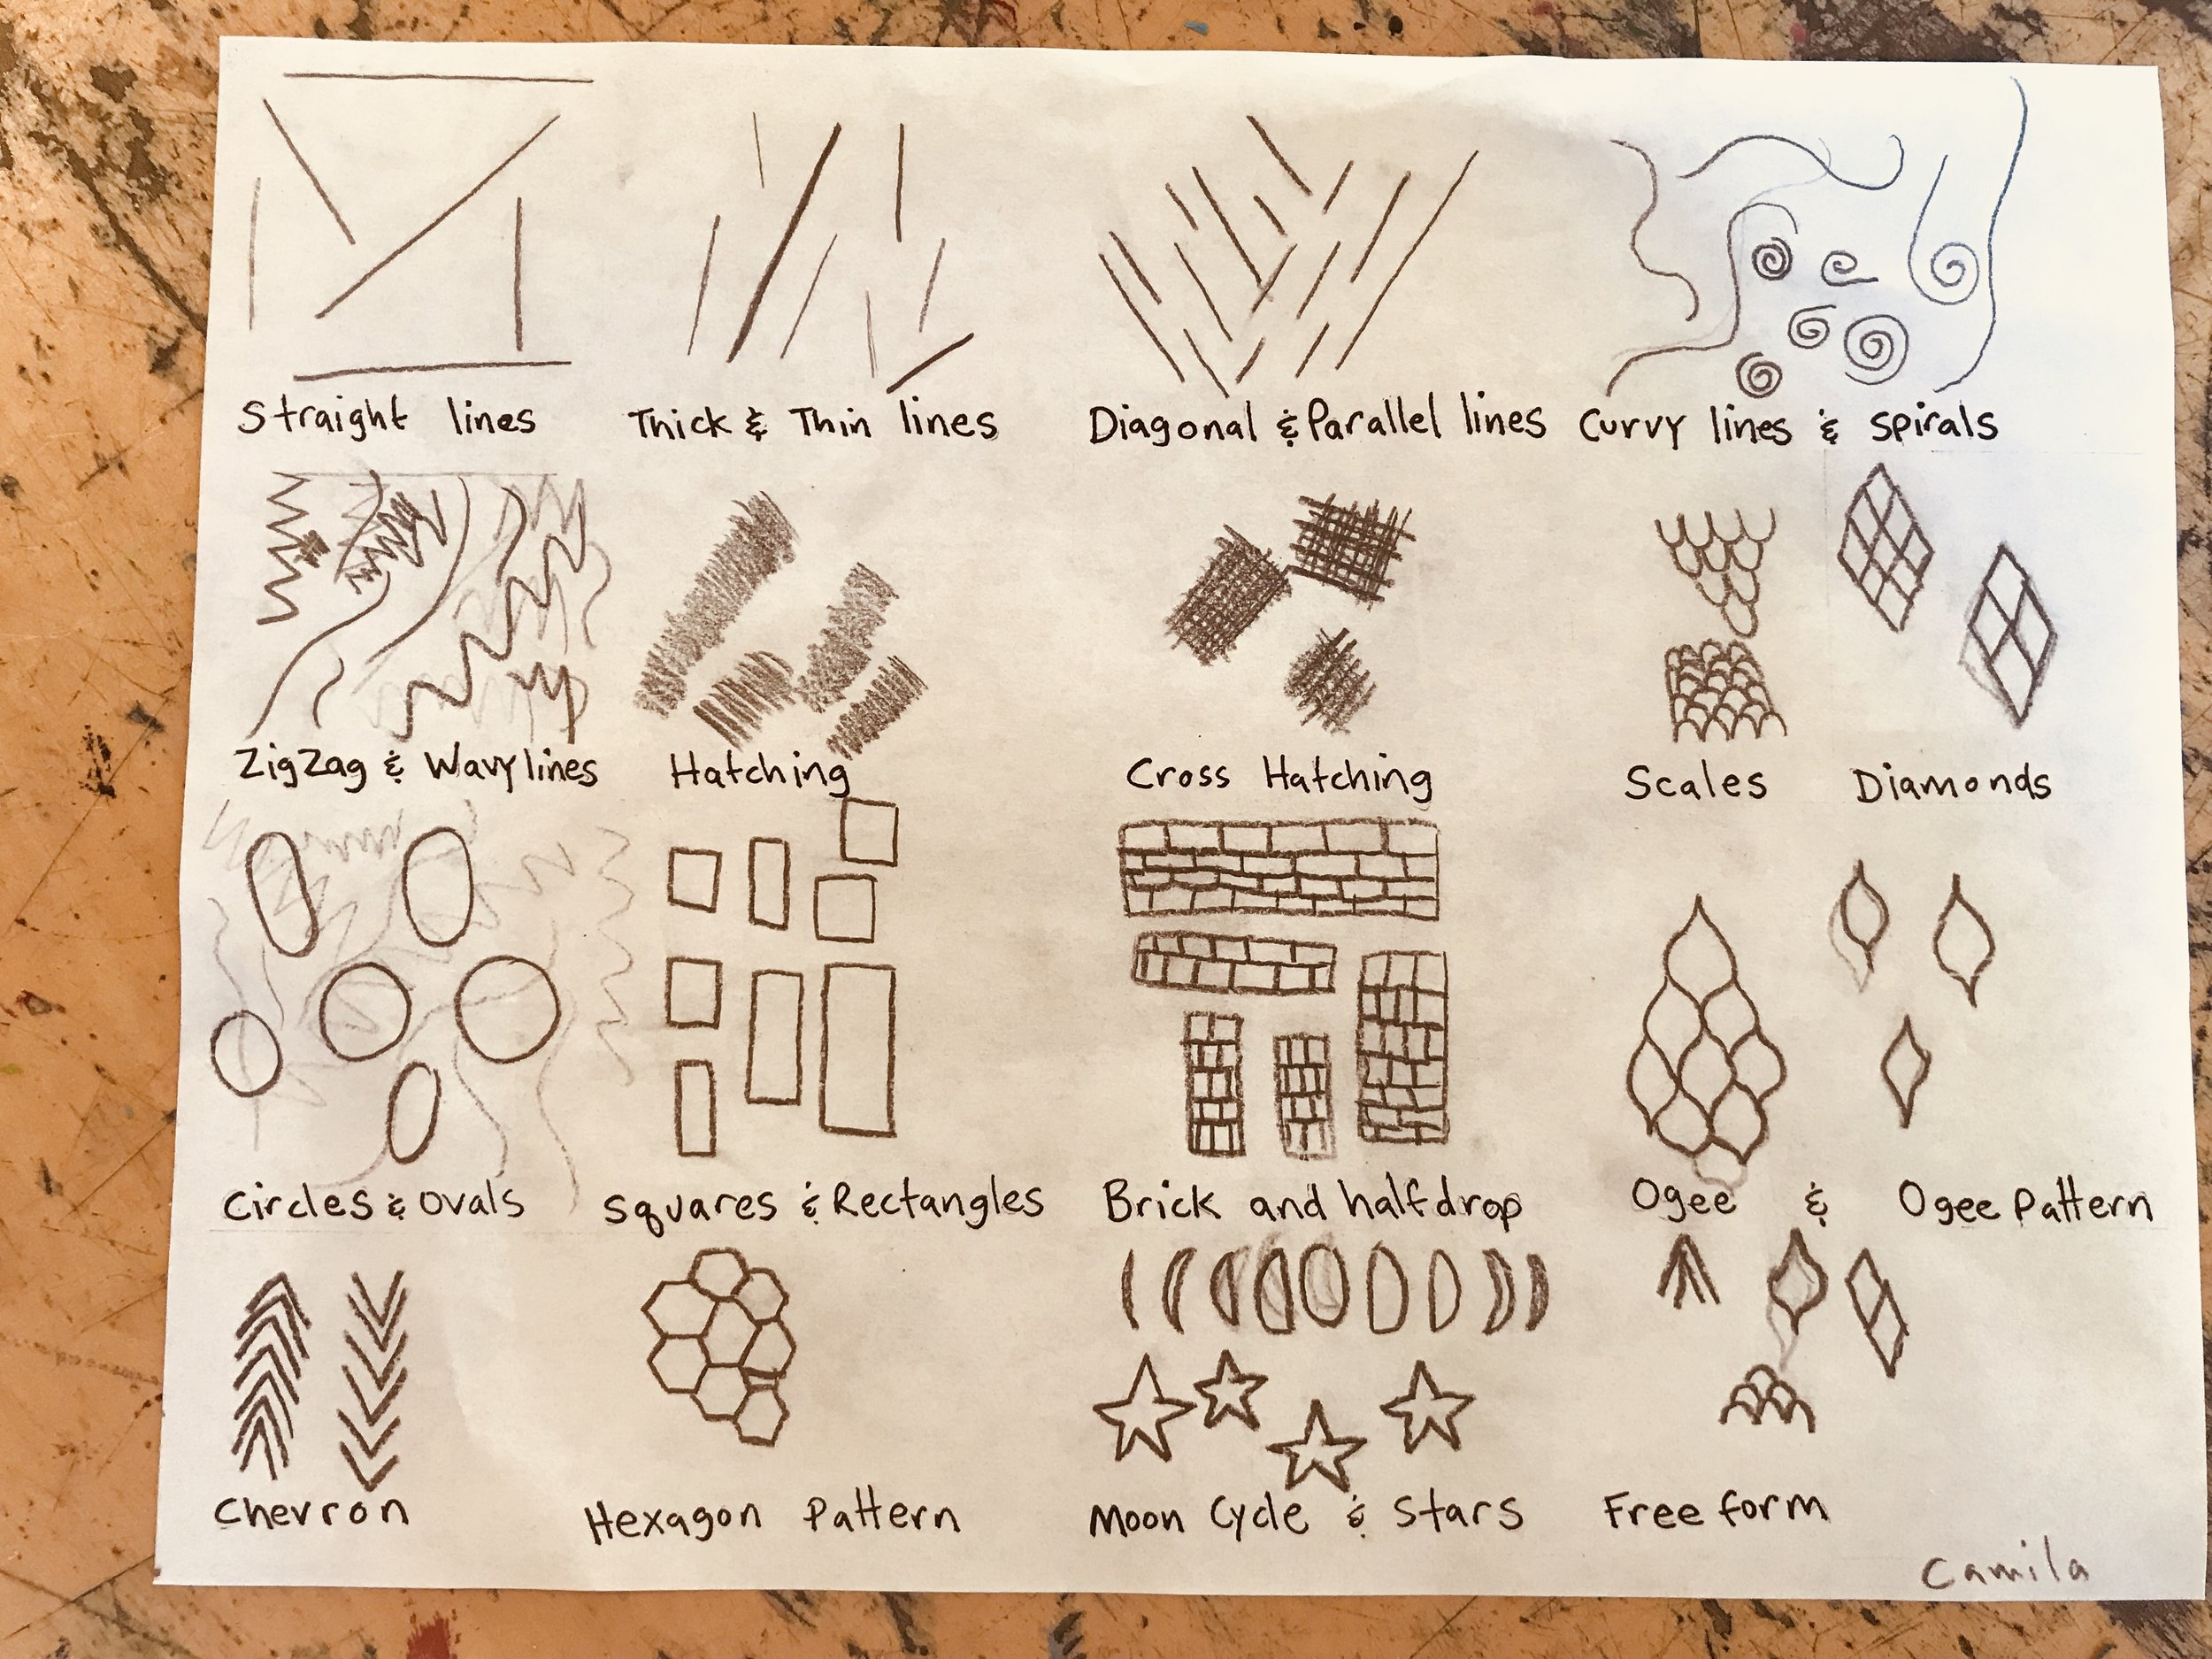 Straight lines
Thick & Thin lines
Diagonal & Parallel lines
Curvy lines & spirals
ZigZag & Wavy lines
Hatching
Cross Hatching
Scales
Diamonds
Circles & Ovals
squares & Rectangles
Brick and halfdrop
Ogee & Ogee Pattern
Chevron
Hexagon Pattern
Moon Cycle & Stars
Free form
Camila